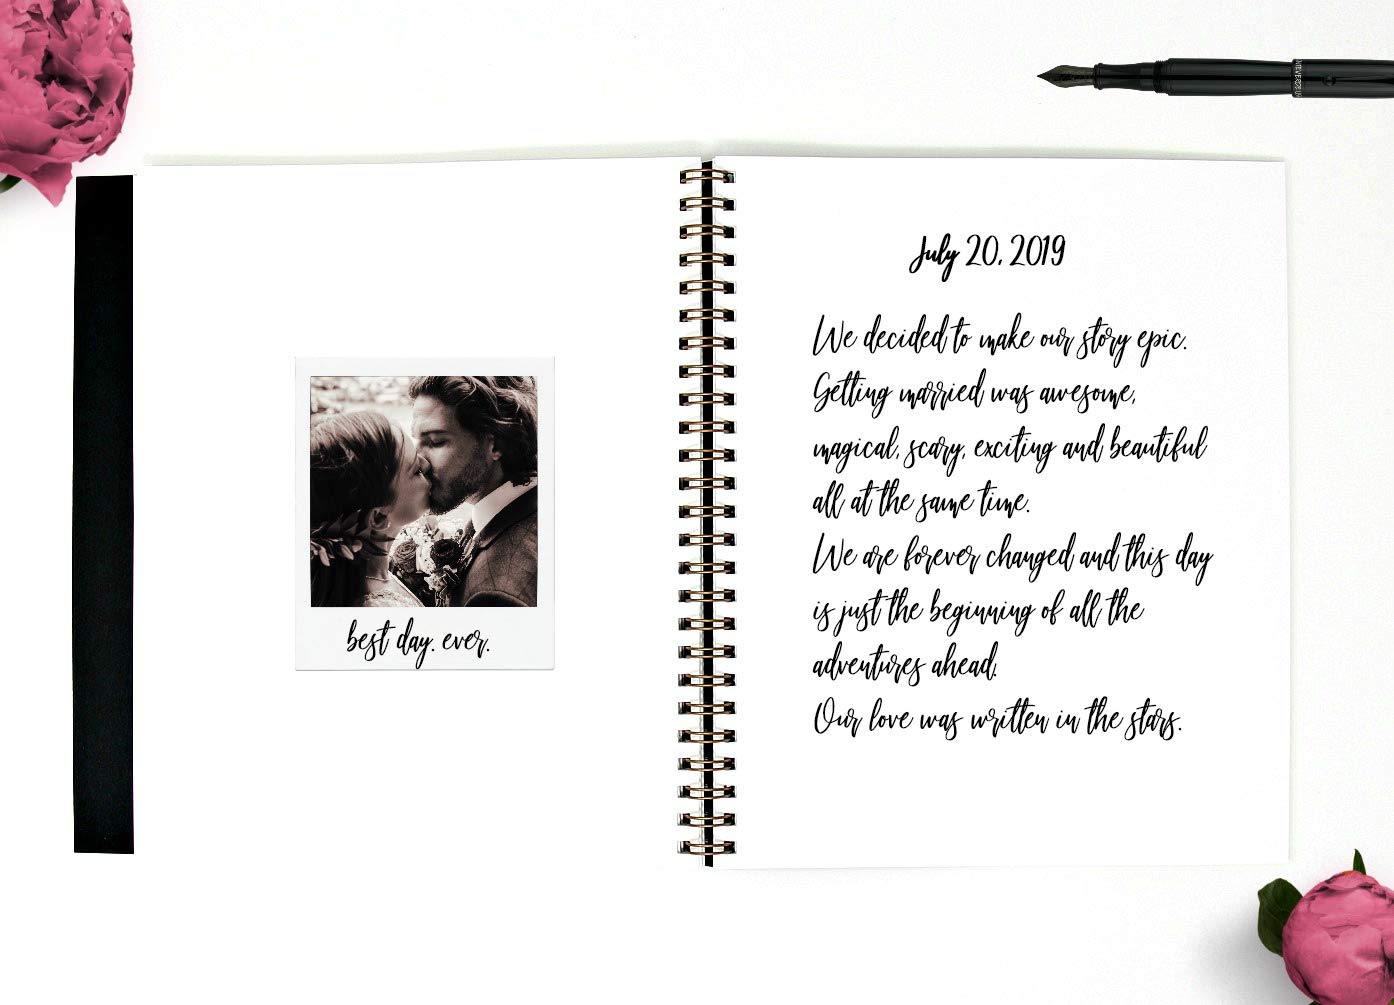 July 20, 2019
We decided to make our story epic.
Getting married was awesome,
magical, scary, exciting and beautiful
all at the same time.
We are forever changed and this day
is just the beginning of all the
adventures ahead.
Our love was written in the stars.
best day. ever.